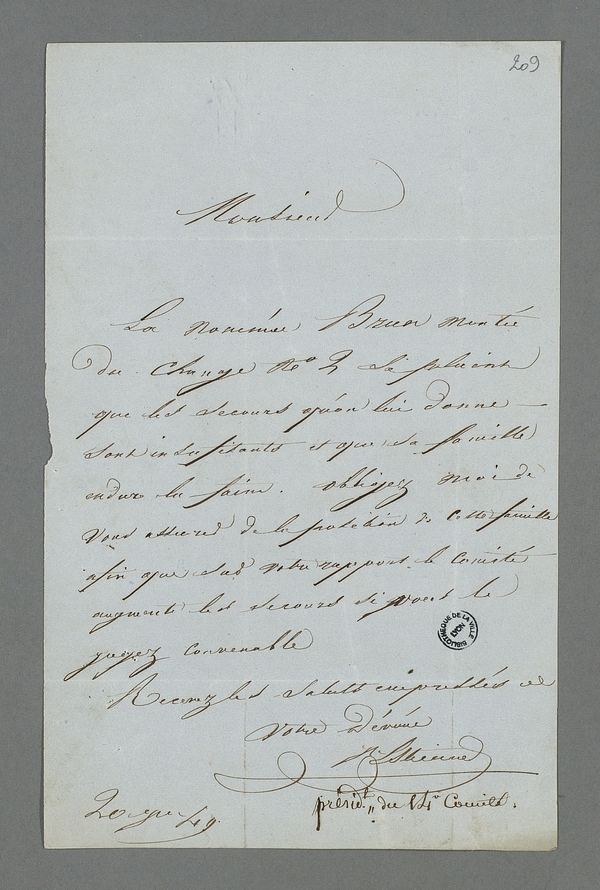 209
Monsieur
La nommée Brun montée
du Change No 2 se plaint
que les secours qu'on lui donne
sont insufisants et que sa famille
endure la faim. obligez moi de
vous assurer de la position de cette famille
afin que sur votre rapport le Comité
augmente les secours si vous le
jugez convenable
Recevez les saluts empressés de
votre dévoué
Etienne
présidt du 14e Comité.
20 49
BIBLIOTHEQUE DE LA VILLE
LYON